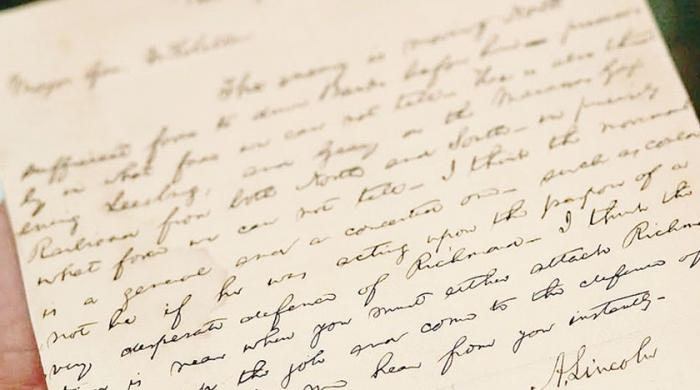 Major Gen. McClellan
The enemy is moving North
sufficient force to drive Banks before him— precise
ly in what force we can not tell— He is also threat
ening Leesburg, and Geary on the Manassas Gap
Railroad from both North and South— in precisely
what force we can not tell— I think the movement
is a general and a concerted one— such as could
not be if he was acting upon the purpose of a
very desperate defence of Richmond— I think the
is near when you must either attack Richm
the job and come to the defence of
me hear from you instantly—
A. Lincoln